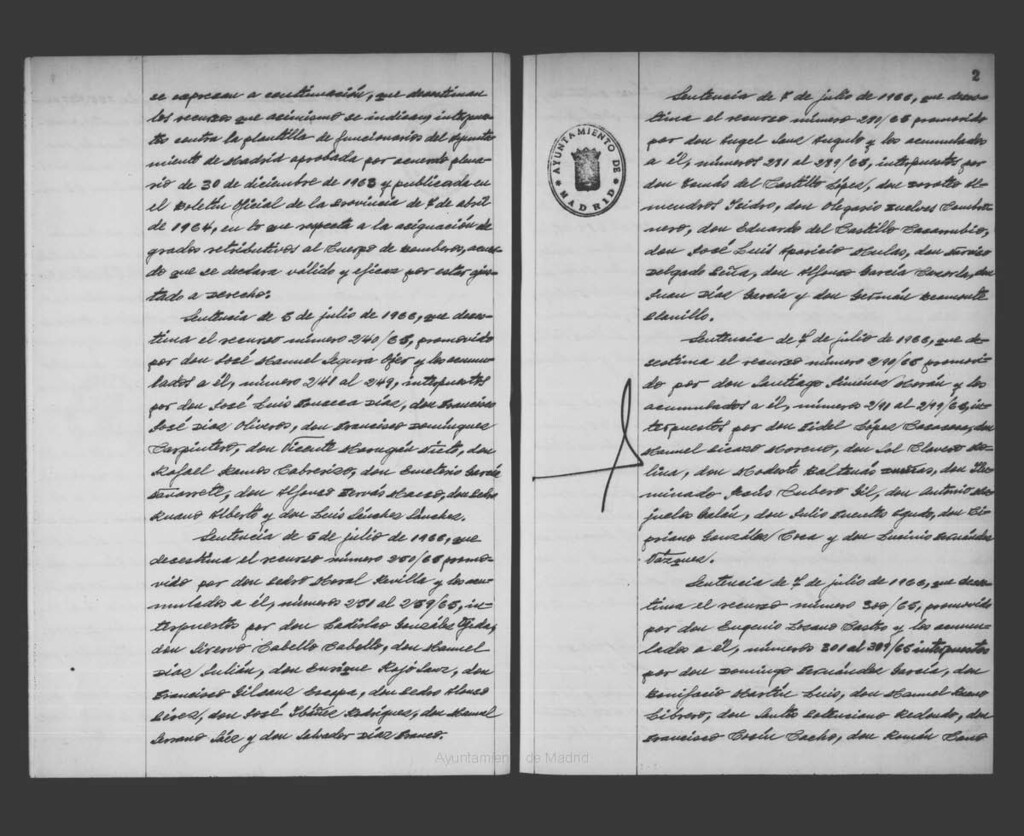 se expresan a continuación, que desestiman
los recursos que asimismo se indican, interpues-
tos contra la plantilla de funcionarios del Ayunta-
miento de Madrid aprobada por acuerdo plena-
rio de 30 de diciembre de 1963 y publicada en
el Boletín Oficial de la Provincia de 7 de abril
de 1964, en lo que respecta a la asignación de
grados retributivos al Cuerpo de Bomberos, acuer-
do que se declara válido y eficaz por estar ajus-
tado a Derecho:
Sentencia de 5 de julio de 1966, que deses-
tima el recurso número 240/65, promovido
por don José Manuel Segura y los acumu-
lados a él, número 241 al 249, interpuestos
por don José Luis Fonseca Díaz, don Francisco
José Díaz Oliveros, don Francisco Domínguez
Carpintero, don Vicente Nieto, don
Rafael Ramos Cabrerizo, don Emeterio García
don Alfonso don Pedro
Ruano Alberto y don Luis Sánchez Sánchez.
Sentencia de 5 de julio de 1966, que
desestima el recurso número 250/65 promo-
vido por don Pedro Moral Sevilla y los acu-
mulados a él, números 251 al 259/65, in-
terpuestos por don Ladislao González Ojeda,
don Cabello Cabello, don Manuel
Díaz Julián, don Enrique Rojo Sanz, don
Francisco don Pedro Alonso
Pérez, don José Ibáñez Rodríguez, don Manuel
Serrano Sáez y don Salvador Díaz Franco.
2
AYUNTAMIENTO DE MADRID
Sentencia de 7 de julio de 1966, que deses-
tima el recurso número 280/65 promovido
por don Angel Sanz Angulo y los acumulados
a él, números 281 al 289/65, interpuestos por
don Tomás del Castillo López, don
Isidro, don Olegario
don Eduardo del Castillo
don José Luis Aparicio Mulas, don
Delgado Peña, don Alfonso García don
Juan Díaz García y don Germán
Sentencia de 7 de julio de 1966, que de-
sestima el recurso número 290/65 promovi-
do por don Santiago Jiménez Morán y los
acumulados a él, números 291 al 299/65, in-
terpuestos por don Fidel López don
Manuel Moreno, don Sol Clavero Mo-
lina, don Modesto don
minado Jesús Cubero Gil, don Antonio
don Julio Puente don Ci-
priano González Coca y don Fernández
Vázquez.
Sentencia de 7 de julio de 1966, que deses-
tima el recurso número 300/65, promovido
por don Eugenio Lozano Castro y los acumu-
lados a él, números 301 al 309/65 interpuestos
por don Domingo Fernández García, don
Bonifacio Martín Luis, don Manuel
don Redondo, don
Francisco Cacho, don Román Cano
Ayuntamiento de Madrid